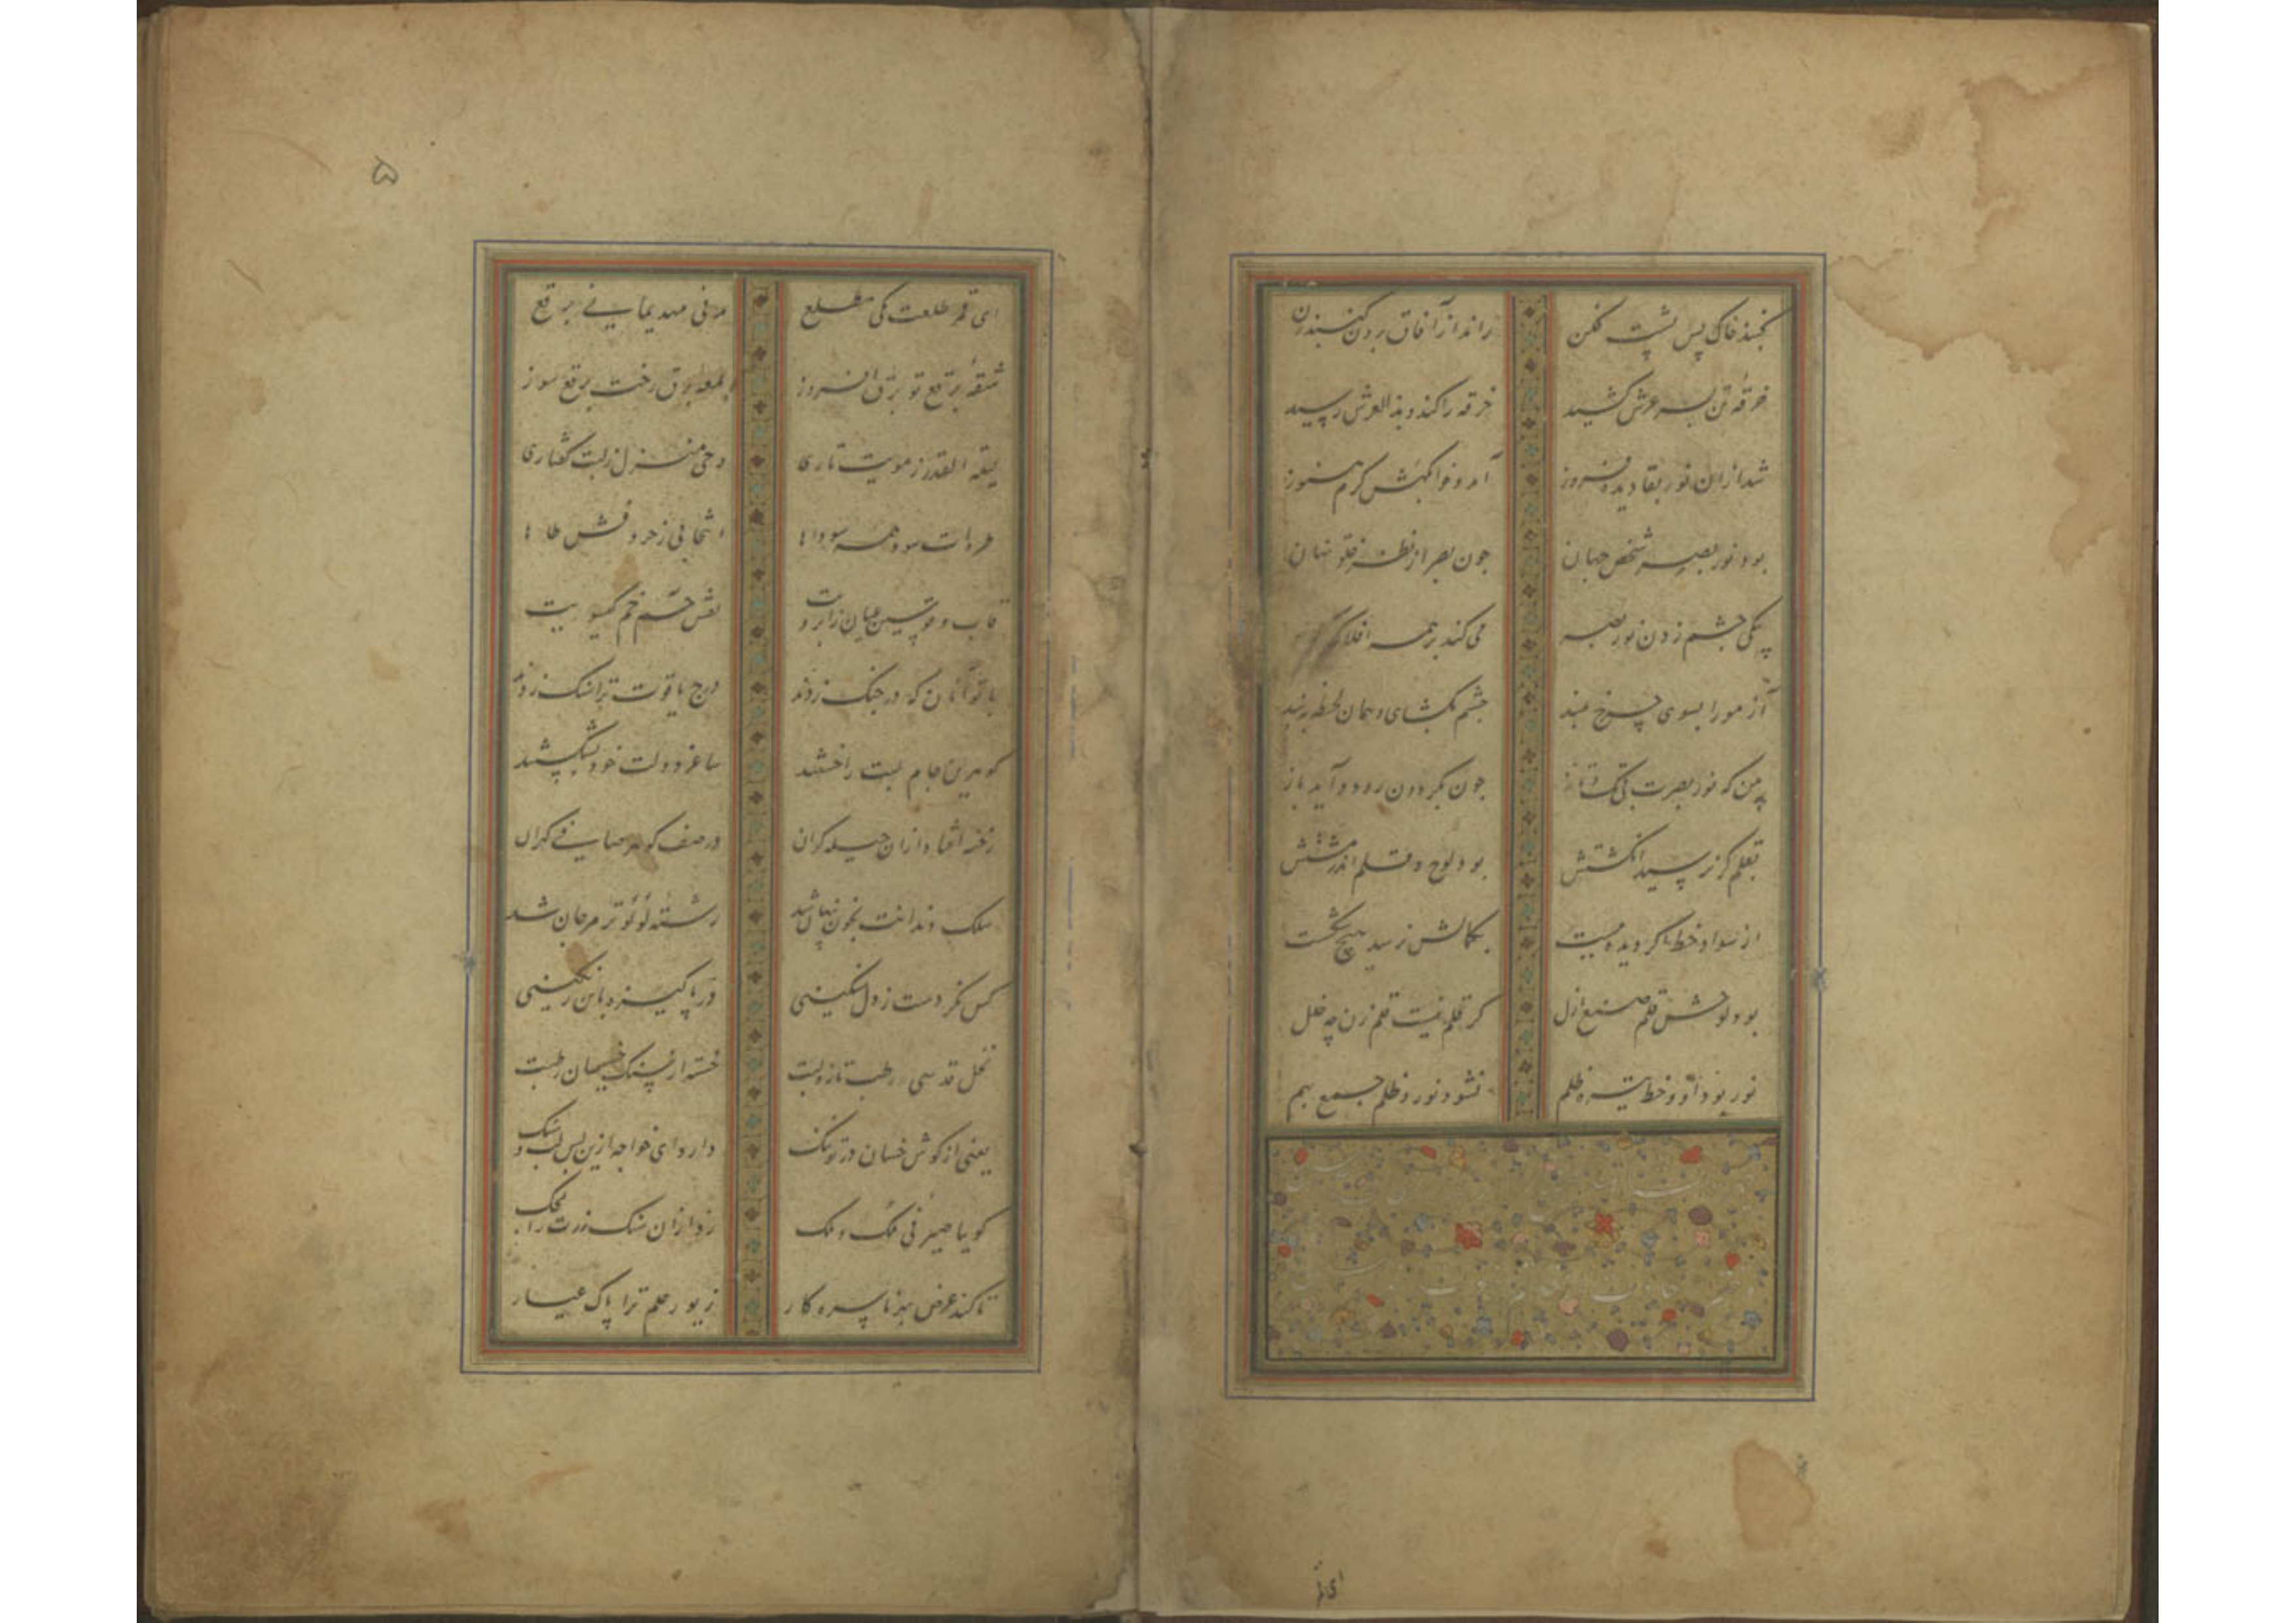 خرقه تن بسر عرش کشید خرقه را کند و بذالعرش رسید
شد ازان نور بقا دیده فروز آمد و خوابگهش گرم هنوز
بود نور بصر شخص جهان جون بصر از نظر خلق نهان
بیکی جشم زدن نور بصر می کند بر همه افلاک
آزمو را بسوی جرخ بلند جشم بکشای و همان لحظه ببند
بین که نور بصرت بی تک و تاز جون بکردون رود و آید باز
بقلم کر نرسید انکشتش بود لوح و قلم اندر مشتش
از سواد خط اکر دیده ببست بکمالش نرسید هیچ شکست
بود لوحش قلم صنع ازل کر قلم نیست قلم زن چه خلل
نور بود او و خط تیره ظلم نشود نور و ظلم جمع بهم
ای قمر طلعت مکی مطلع مدنی مهد یمانی برقع
شقه برقع تو برق افروز لمعه برق رخت برقع سوز
لیلة القدر ز مویت تاری وحی منزل ز لبت کفتاری
قاب و قوسین عیان ز ابرویت نقش حم خم کیسویت
با تو آنان که در جنک زدند درج یاقوت ترا سنک زدند
کوهرین جام لبت را خستند ساغر دولت خود بشکستند
رخنه افتاد ازان حیله کران در صف کوهر صافی کهران
سلک دندانت بخون پنهان شد رشته لؤلؤ تر مرجان شد
کس نکردست ز دل سنکینی در پاکیزه باین رنکینی
نخل قدسی رطب تازه لبت خسته از سنک خسیسان رطبت
یعنی از کوش خسان در تو تنک دارد ای خواجه ازین پس لب و سنک
کویا صیرفی ملک و ملک زد ازان سنک زرت را بمحک
تا کند عرض بهر ناسره کار زیور حلم ترا پاک عیار
۵